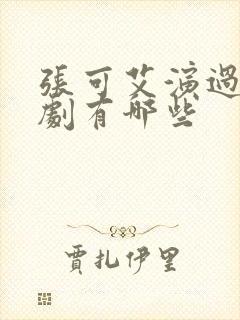 張可艾演過
劇有哪些
賈扎伊里